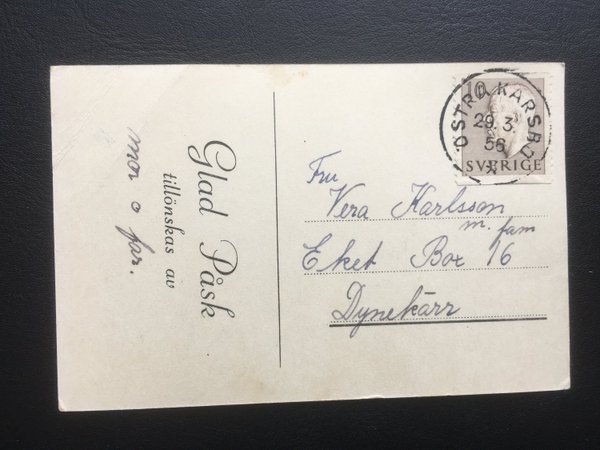 Glad Påsk
tillönskas av
mor o far.
10
29.3.
56
SVERIGE
Fru
Vera Karlsson
m. fam
Eket Box 16
Dynekärr